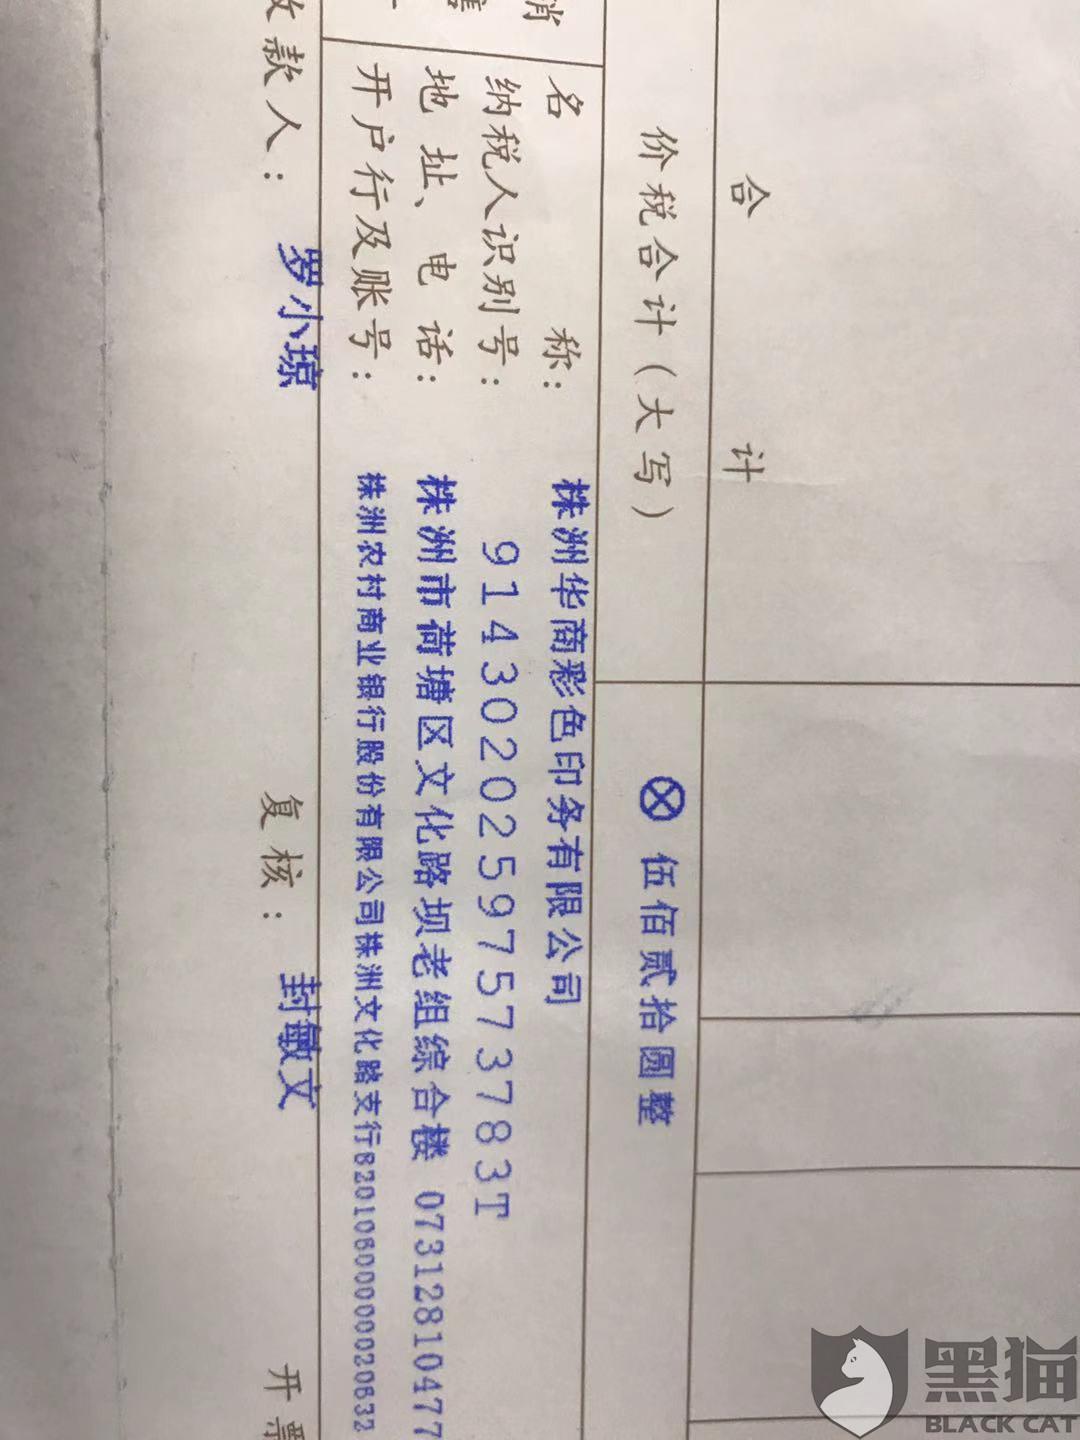 合 计
价税合计（大写） ⊗ 伍佰贰拾圆整
名 称： 株洲华商彩色印务有限公司
纳税人识别号： 91430202597573783T
地 址、电 话： 株洲市荷塘区文化路坝老组综合楼 073128104777
开户行及账号： 株洲农村商业银行股份有限公司株洲文化路支行82010600000020632
款人： 罗小琼 复核： 封敏文 开票
黑猫
BLACK CAT